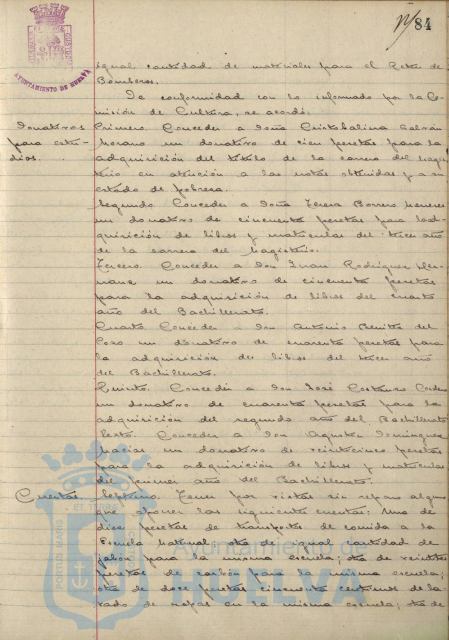 84
AYUNTAMIENTO DE HUELVA
igual cantidad de materiales para el Reten de
Bomberos.
De conformidad con lo informado por la Co-
misión de Cultura, se acordó:
Donativos
para estu-
dios.
Primero. Conceder a Doña Cristobalina Galván
Moreno un donativo de cien pesetas para la
adquisición del título de la carrera del Magis-
terio en atención a las notas obtenidas y a su
estado de pobreza.
Segundo. Conceder a Doña Teresa Borrero
un donativo de cincuenta pesetas para la ad-
quisición de libros y matrículas del tercer año
de la carrera del Magisterio.
Tercero. Conceder a Don Juan Rodríguez
un donativo de cincuenta pesetas
para la adquisición de libros del cuarto
año del Bachillerato.
Cuarto. Conceder a Don Antonio Benítez del
un donativo de cuarenta pesetas para
la adquisición de libros del tercer año
del Bachillerato.
Quinto. Conceder a Don José
un donativo de cuarenta pesetas para la
adquisición del segundo año del Bachillerato
Sexto. Conceder a Don Agustín Domínguez
Macías un donativo de veinticinco pesetas
para la adquisición de libros y matrículas
del primer año del Bachillerato.
Cuentas
Séptimo. Tener por vistas sin reparo alguno
que oponer las siguientes cuentas: Una de
diez pesetas de transportes de comida a la
Escuela Maternal otra de igual cantidad de
jabón para la misma escuela; otra de
pesetas de carbón para la misma escuela;
otra de doce pesetas cincuenta céntimos de la-
vado de ropas en la misma escuela; otra de
Ayuntamiento de
HUELVA
PORTUS MARIS
ET TERRAE